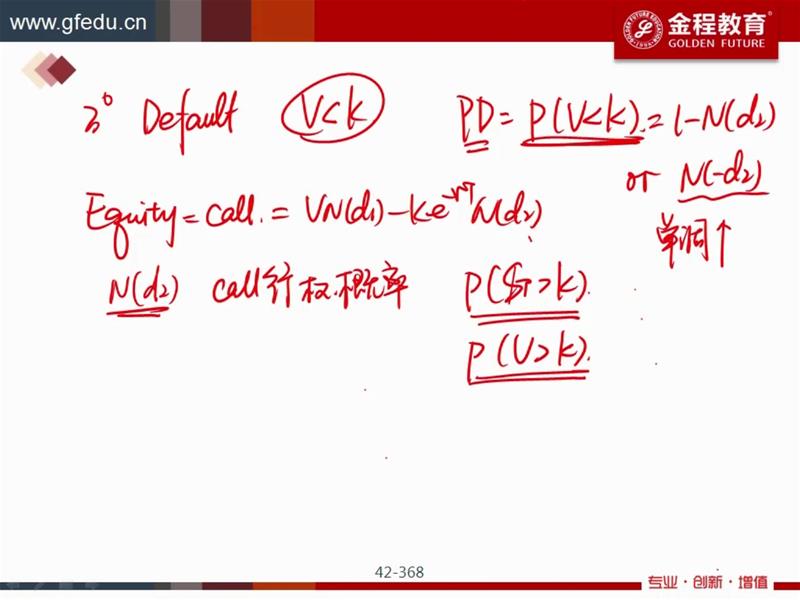 www.gfedu.cn
金程教育®
GOLDEN FUTURE
3° Default V<K PD = P(V<K) = 1-N(d₂)
or N(-d₂)
单调↑
Equity = Call. = VN(d₁) - Ke⁻ʳᵀN(d₂)
N(d₂) call行权.概率 P(Sᴛ>K).
P(V>K).
42-368
专业·创新·增值